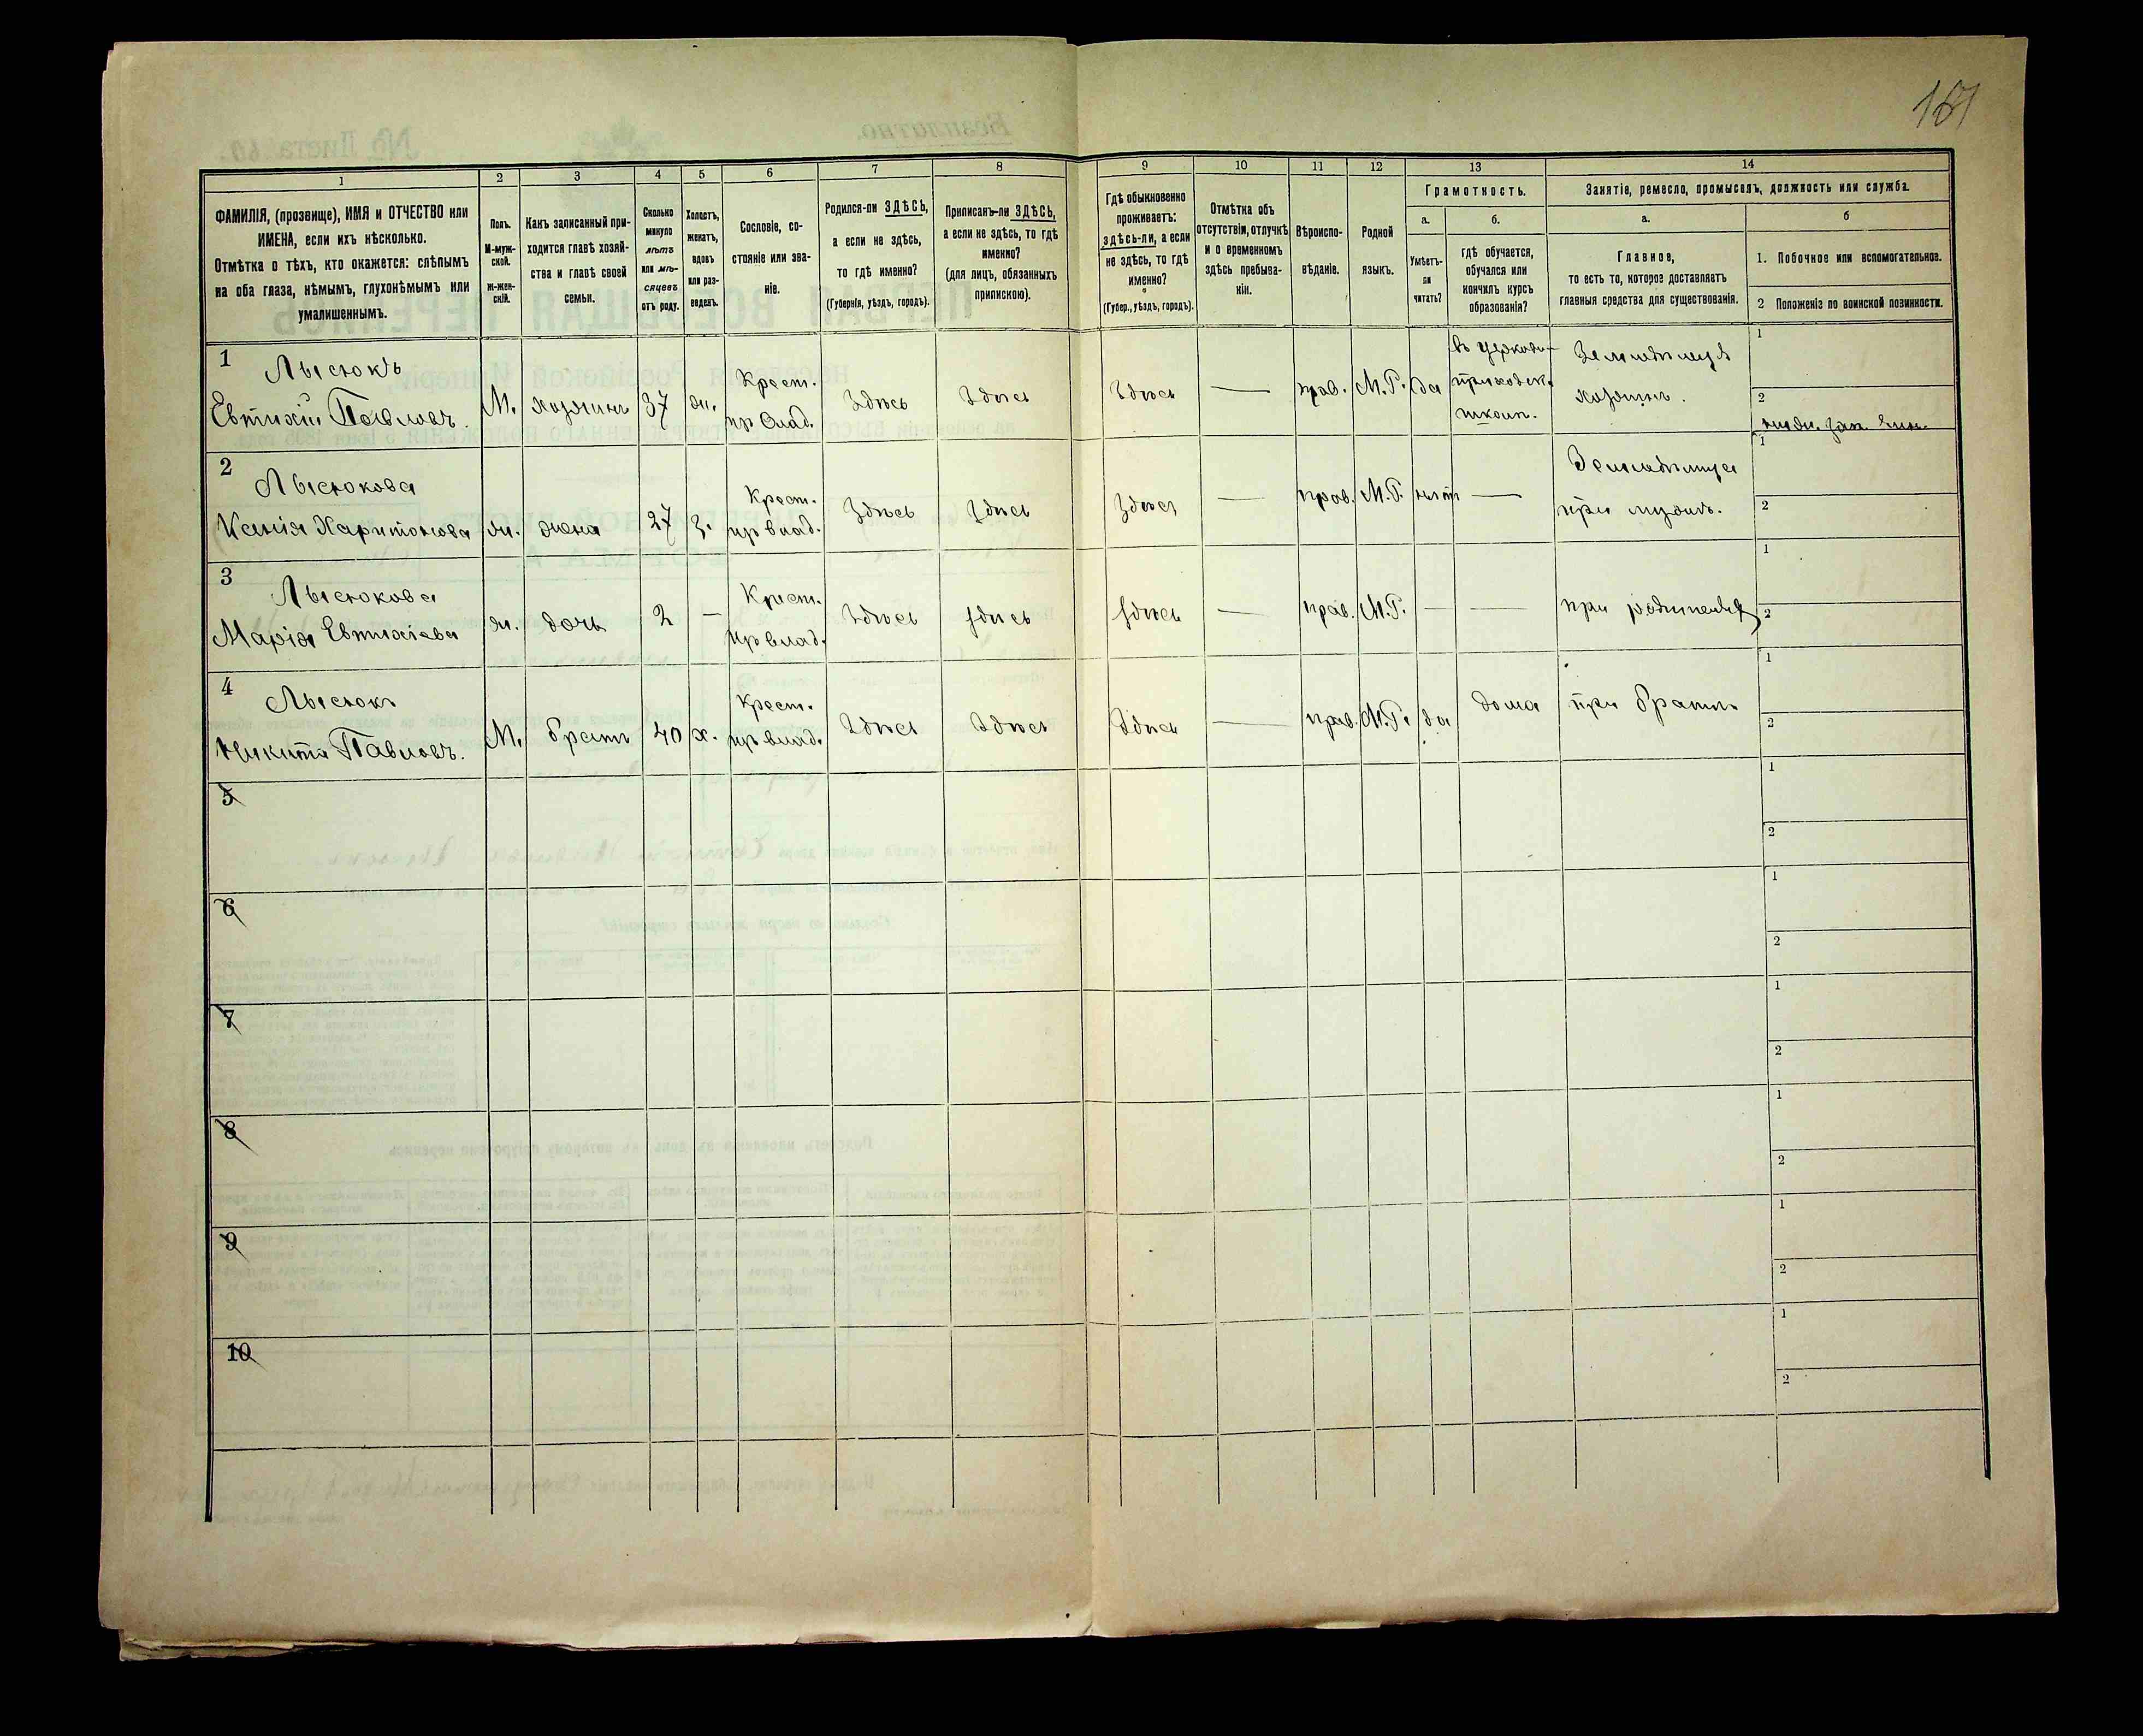 161
1
2
3
4
5
6
7
8
9
10
11
12
13
14
ФАМИЛІЯ, (прозвище), ИМЯ и ОТЧЕСТВО или
ИМЕНА, если ихъ нѣсколько.
Отмѣтка о тѣхъ, кто окажется: слѣпымъ
на оба глаза, нѣмымъ, глухонѣмымъ или
умалишеннымъ.
Полъ.
М-муж-
ской.
ж-жен-
скій.
Какъ записанный при-
ходится главѣ хозяй-
ства и главѣ своей
семьи.
Сколько
минуло
лѣтъ
или мѣ-
сяцевъ
отъ роду.
Холостъ,
женатъ,
вдовъ
или раз-
веденъ.
Сословіе, со-
стояніе или зва-
ніе.
Родился-ли ЗДѢСЬ,
а если не здѣсь,
то гдѣ именно?
(Губернія, уѣздъ, городъ).
Приписанъ-ли ЗДѢСЬ,
а если не здѣсь, то гдѣ
именно?
(для лицъ, обязанныхъ
припискою).
Гдѣ обыкновенно
проживаетъ:
здѣсь-ли, а если
не здѣсь, то гдѣ
именно?
(Губер., уѣздъ, городъ).
Отмѣтка объ
отсутствіи, отлучкѣ
и о временномъ
здѣсь пребыва-
ніи.
Вѣроиспо-
вѣданіе.
Родной
языкъ.
Грамотность.
а.
б.
Умѣетъ-
ли
читать?
гдѣ обучается,
обучался или
кончилъ курсъ
образованія?
Занятіе, ремесло, промыселъ, должность или служба.
а.
б
Главное,
то есть то, которое доставляетъ
главныя средства для существованія.
1. Побочное или вспомогательное.
2 Положеніе по воинской повинности.
1
Лысюкъ
Евтихій Павловъ.
М.
хозяинъ
37
ж.
Крест.
пр влад.
Здѣсь
Здѣсь
Здѣсь
—
прав.
М.Р.
да
въ церковно-
приходск.
школѣ.
Земледѣлецъ
хозяинъ.
1
2
2
Лысюкова
Ксенія Харитонова
ж.
жена
27
з.
Крест.
пр влад.
Здѣсь
Здѣсь
Здѣсь
—
прав.
М.Р.
нѣтъ
—
Земледѣлица
при мужѣ.
1
2
3
Лысюкова
Марія Евтихіева
ж.
дочь
2
—
Крест.
пр влад.
Здѣсь
Здѣсь
Здѣсь
—
прав.
М.Р.
—
—
при родителяхъ
1
2
4
Лысюкъ
Никита Павловъ.
М.
братъ
40
х.
Крест.
пр влад.
Здѣсь
Здѣсь
Здѣсь
—
прав.
М.Р.
да
дома
при братѣ
1
2
5
1
2
6
1
2
7
1
2
8
1
2
9
1
2
10
1
2